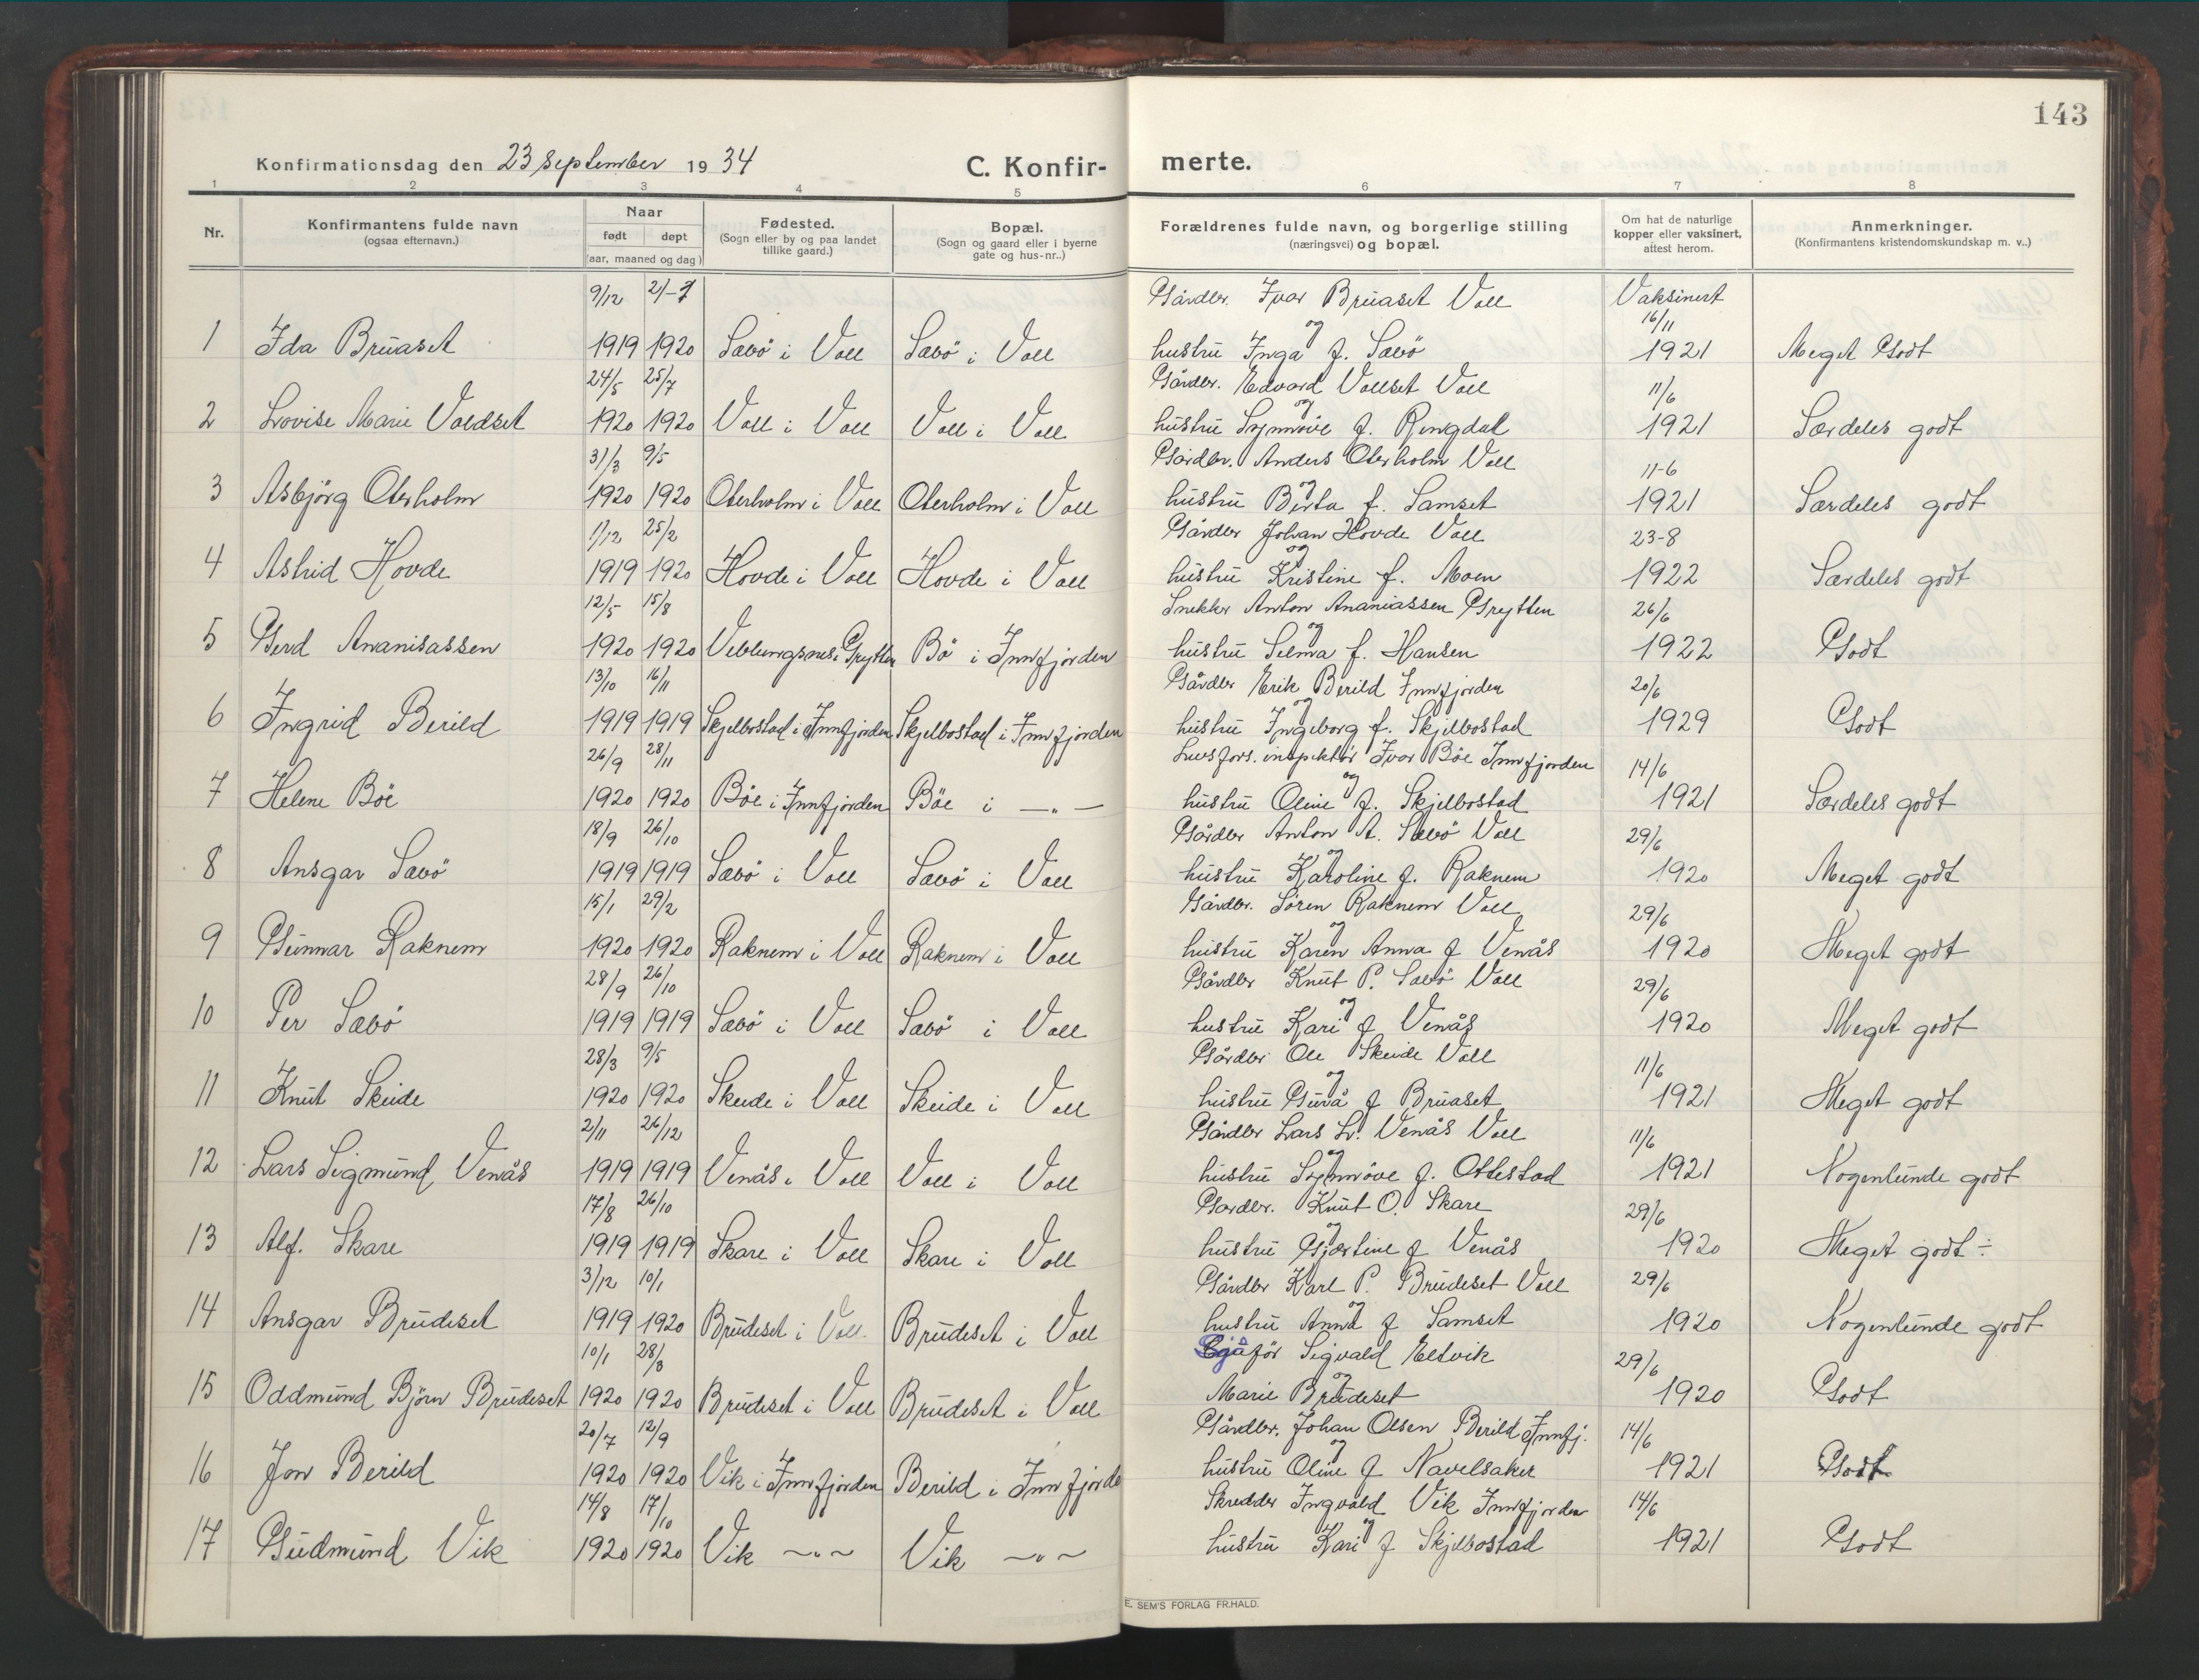 143
Konfirmationsdag den 23 September 1934
C. Konfirmerte.
1 2 3 4 5 6 7 8
Nr.
Konfirmantens fulde navn
(ogsaa efternavn.)
Naar
født døpt
(aar, maaned og dag)
Fødested.
(Sogn eller by og paa landet
tillike gaard.)
Bopæl.
(Sogn og gaard eller i byerne
gate og hus-nr..)
Forældrenes fulde navn, og borgerlige stilling
(næringsvei) og bopæl.
Om hat de naturlige
kopper eller vaksinert,
attest herom.
Anmerkninger.
(Konfirmantens kristendomskundskap m. v..)
9/12 2/-7 Gårdbr. Ivar Bruaset Voll Vaksinert
og 16/11
1 Ida Bruaset 1919 1920 Sæbö i Voll Sæbö i Voll hustru Inga f. Sæbö 1921 Meget Godt
24/5 25/7 Gårdbr. Edvard Vollset Voll 11/6
og
2 Lovise Marie Voldset 1920 1920 Voll i Voll Voll i Voll hustru Synnöve f. Ringdal 1921 Særdeles godt
31/3 9/5 Gårdbr. Anders Oterholm Voll 11-6
og
3 Asbjörg Oterholm 1920 1920 Oterholm i Voll Oterholm i Voll hustru Berta f. Samset 1921 Særdeles godt
1/12 25/2 Gårdbr Johan Hovde Voll 23-8
og
4 Astrid Hovde 1919 1920 Hovde i Voll Hovde i Voll hustru Kristine f. Moen 1922 Særdeles godt
12/5 15/8 Snekker Anton Ananiassen Grytten 26/6
og
5 Gerd Ananisassen 1920 1920 Veblungsnes i Grytten Bö i Innfjorden hustru Selma f. Hansen 1922 Godt
13/10 16/11 Gårdbr Erik Berild Innfjorden 20/6
og
6 Ingrid Berild 1919 1919 Skjelbostad i Innfjorden Skjelbostad i Innfjorden hustru Ingeborg f. Skjelbostad 1929 Godt
26/9 28/11 inspektör Ivar Böe Innfjorden 14/6
og
7 Helene Böe 1920 1920 Böe i Innfjorden Böe i —„— hustru Oline f. Skjelbostad 1921 Særdeles godt
18/9 26/10 Gårdbr Anton A. Sæbö Voll 29/6
og
8 Ansgar Sæbö 1919 1919 Sæbö i Voll Sæbö i Voll hustru Karoline f. Raknem 1920 Meget godt
15/1 29/2 Gårdbr. Sören Raknem Voll 29/6
og
9 Gunnar Raknem 1920 1920 Raknem i Voll Raknem i Voll hustru Karen Anna f Venås 1920 Meget godt
28/9 26/10 Gårdbr Knut P. Sæbö Voll 29/6
og
10 Per Sæbö 1919 1919 Sæbö i Voll Sæbö i Voll hustru Kari f Venås 1920 Meget godt
28/3 9/5 Gårdbr Ole Skeide Voll 11/6
og
11 Knut Skeide 1920 1920 Skeide i Voll Skeide i Voll hustru Guva f Bruaset 1921 Meget godt
2/11 26/12 Gårdbr Lars L. Venås Voll 11/6
og
12 Lars Sigmund Venås 1919 1919 Venås i Voll Voll i Voll hustru Synnöve f. Ottestad 1921 Nogenlunde godt
17/8 26/10 Gardbr. Knut O. Skare 29/6
og
13 Alf. Skare 1919 1919 Skare i Voll Skare i Voll hustru Gjertine f Venås 1920 Meget godt ÷
3/12 10/1 Gårdbr Karl P. Brudeset Voll 29/6
og
14 Ansgar Brudeset 1919 1920 Brudeset i Voll. Brudeset i Voll hustru Anna f Samset 1920 Nogenlunde godt
10/1 28/3 Sigvald Eltvik 29/6
og
15 Oddmund Björn Brudeset 1920 1920 Brudeset i Voll Brudeset i Voll Marie Brudeset 1920 Godt
20/7 12/9 Gårdbr. Johan Olsen Berild Innfj. 14/6
og
16 Jon Berild 1920 1920 Vik i Innfjorden Berild i Innfjorde hustru Oline f Navelsaker 1921 Godt
14/8 17/10 Skredder Ingvald Vik Innfjorden 14/6
og
17 Gudmund Vik 1920 1920 Vik ~„~ Vik ~„~ hustru Kari f Skjelbostad 1921 Godt
E. SEM'S FORLAG FR.HALD.